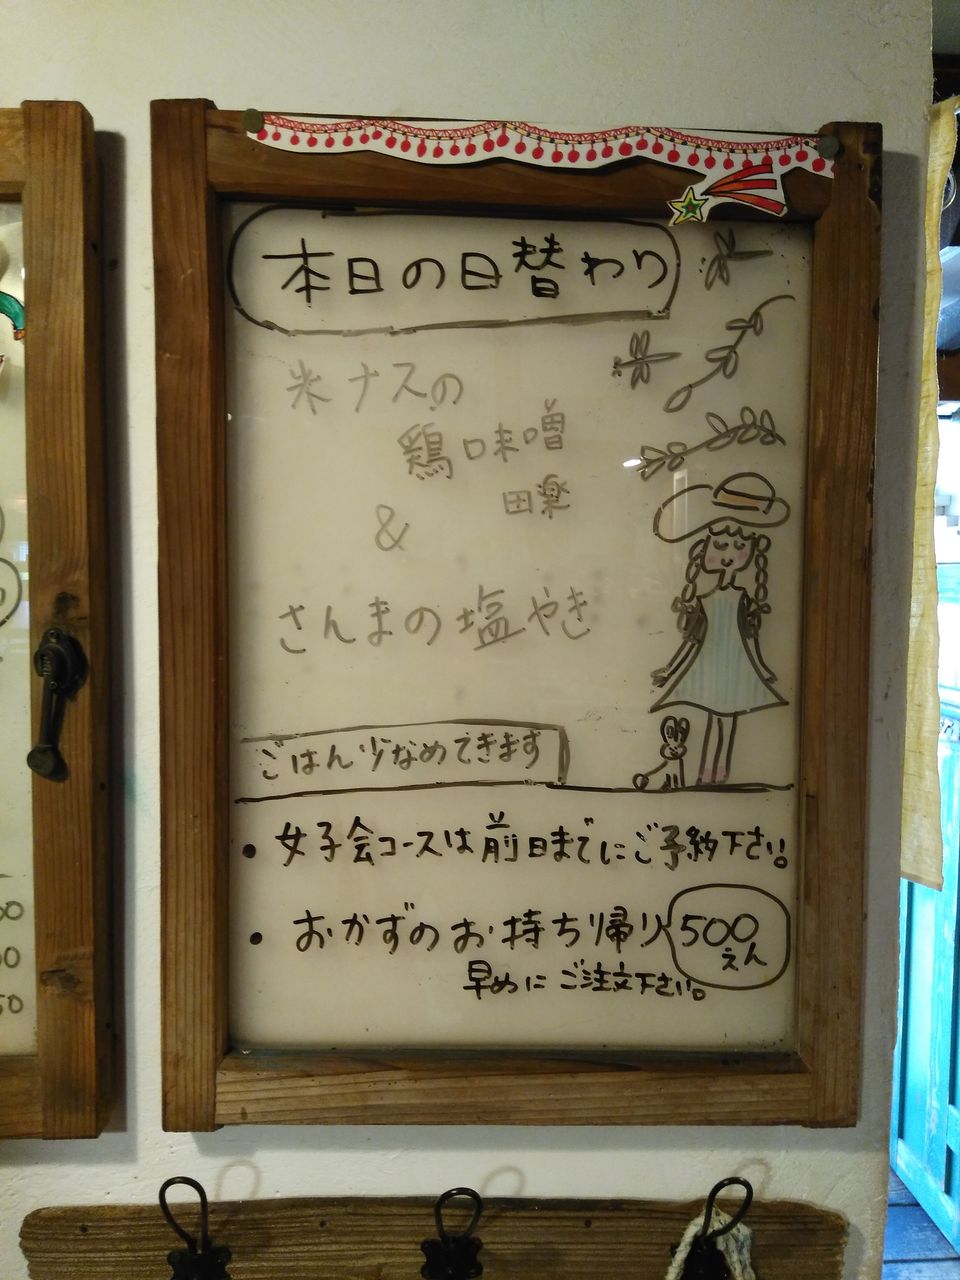 本日の日替わり
米ナスの
鶏味噌
田楽
&
さんまの塩やき
ごはん少なめできます
• 女子会コースは前日までにご予約下さい。
• おかずのお持ち帰り 500
えん
早めにご注文下さい。